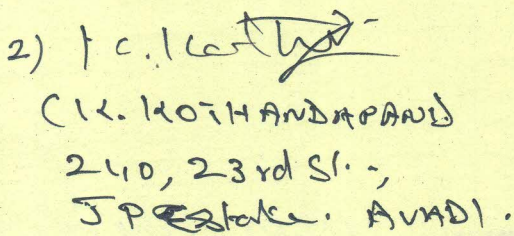 2) K. Koth
(K. KOTHANDAPANI)
240, 23rd St.,
J P Estate. AVADI.